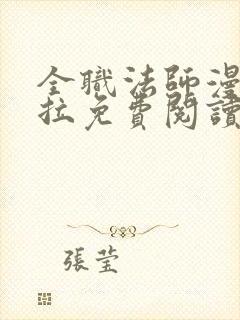 全職法師漫
拉免費閱讀
張瑩